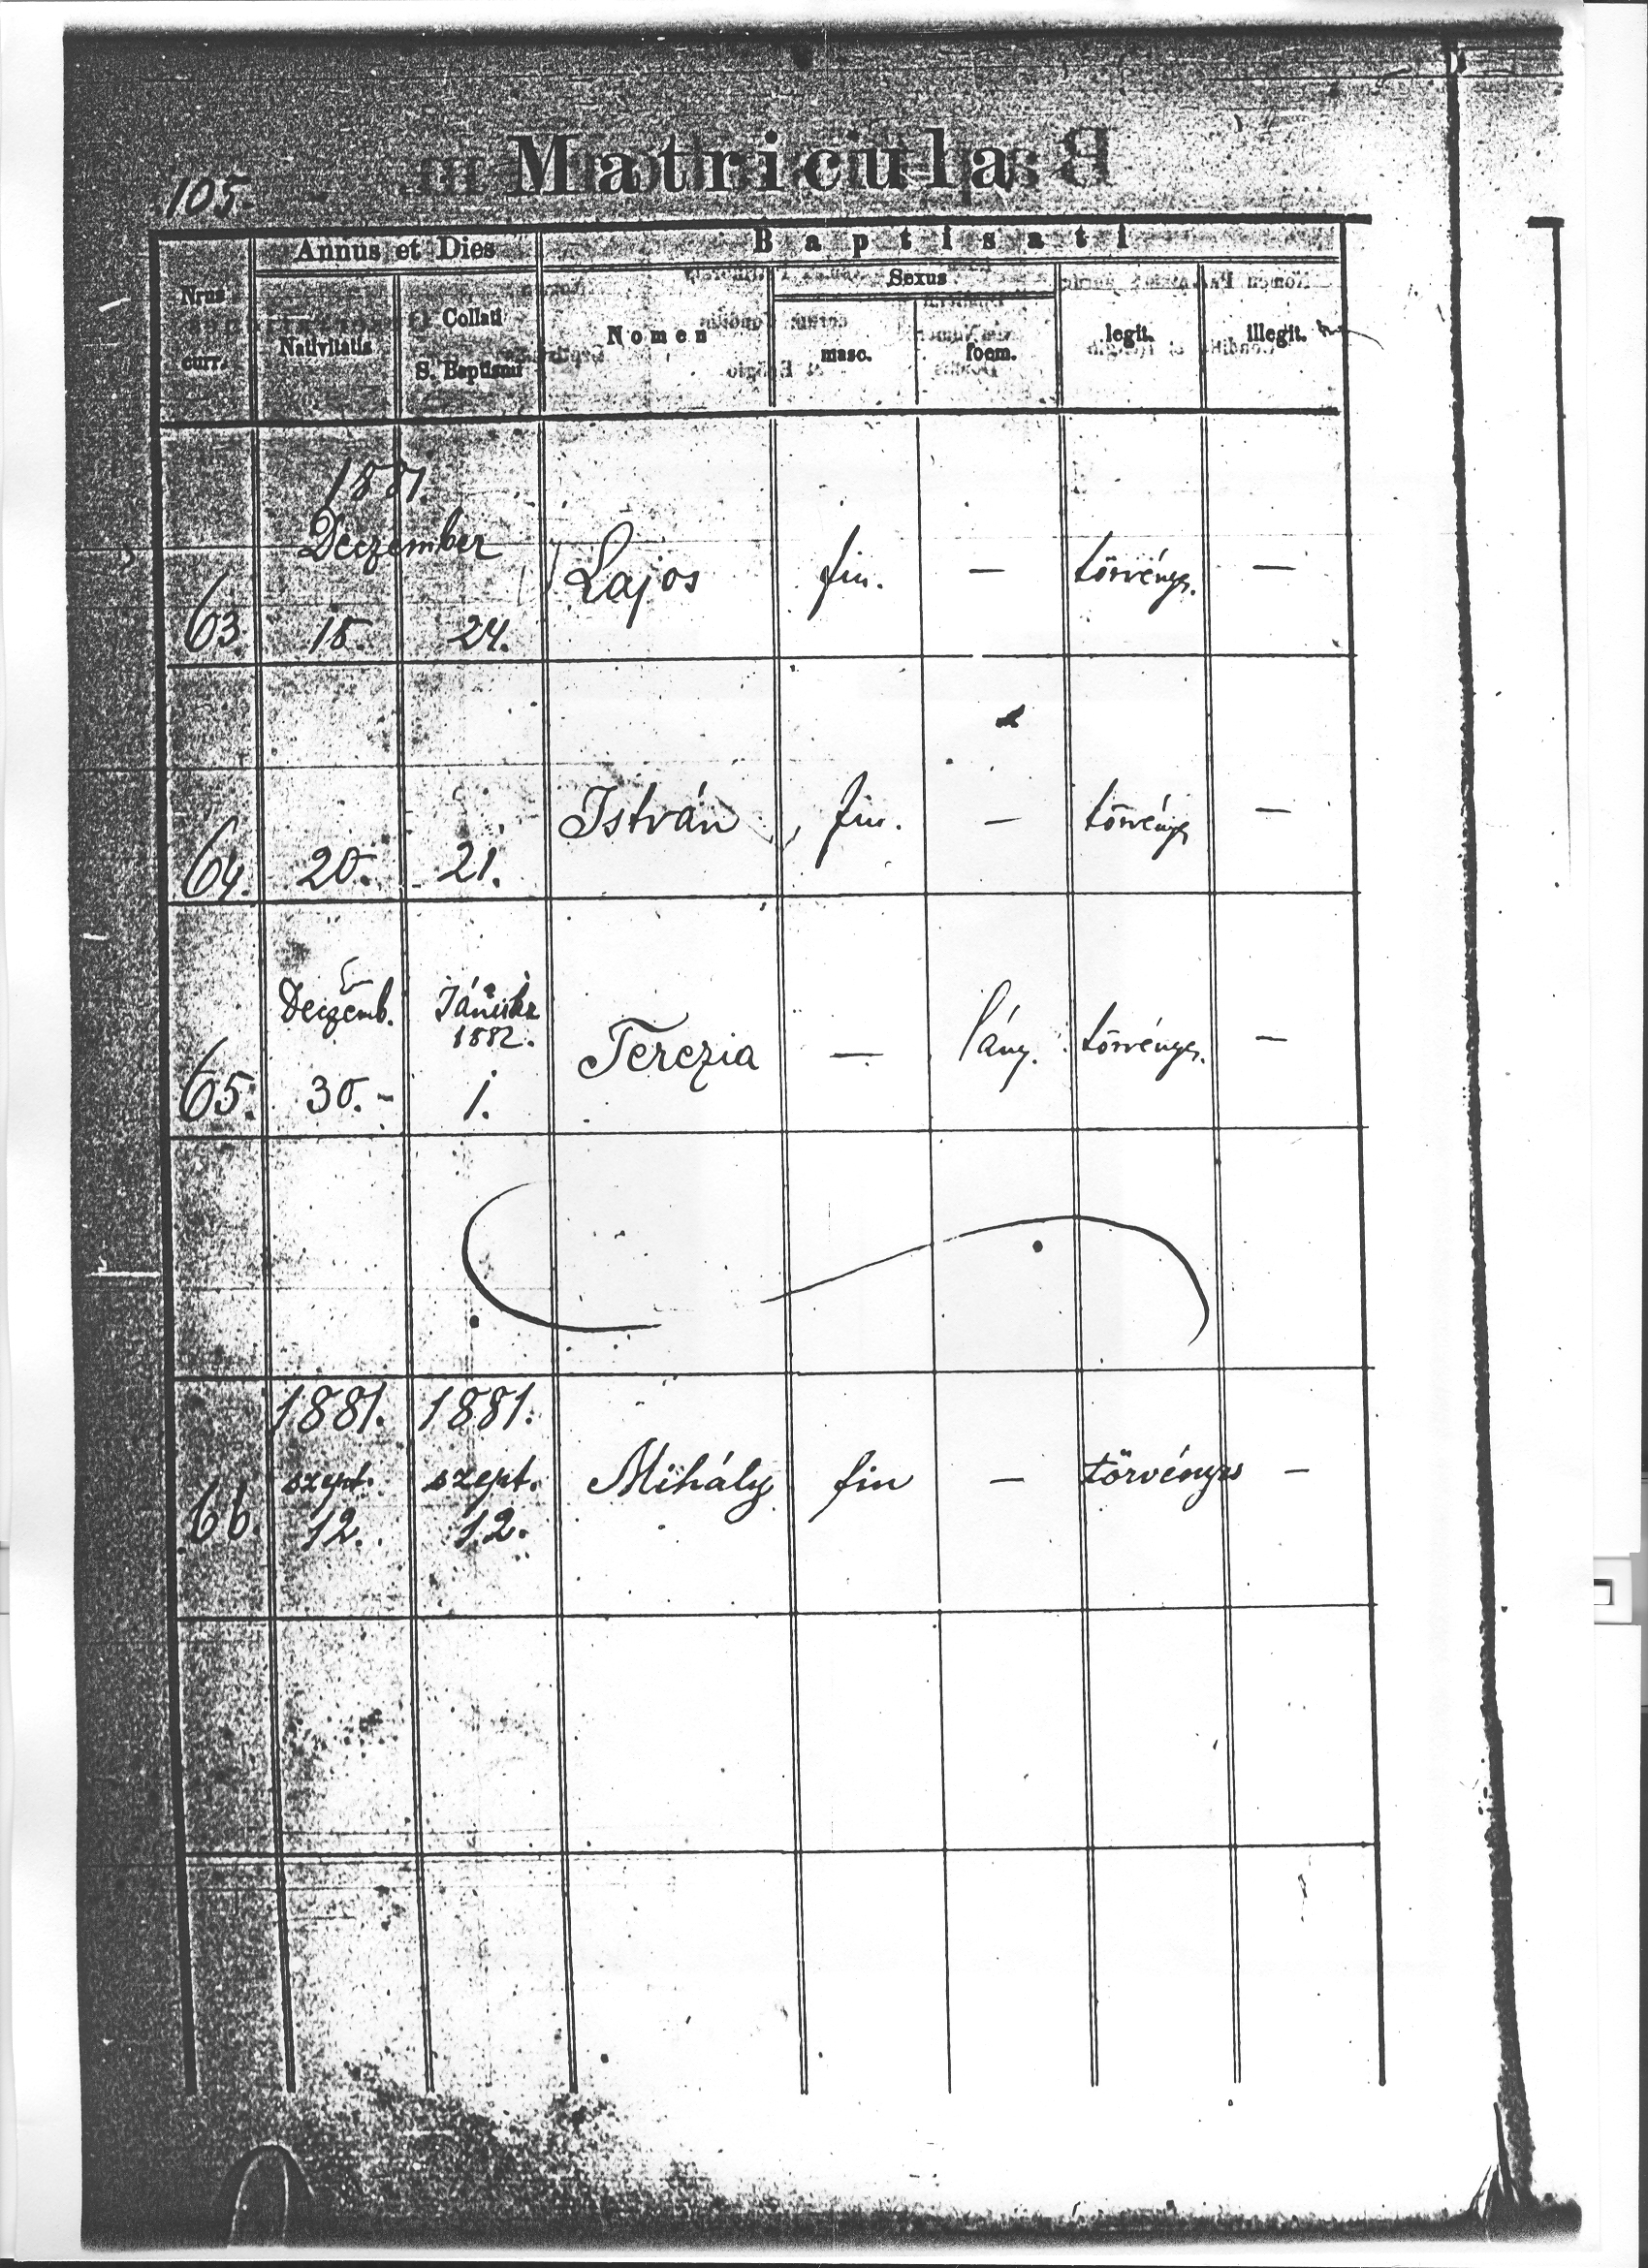 Matricula
105.
Annus et Dies
Baptisati
Nrus
curr.
Nativitatis
Collati
S. Baptismi
Nomen
Sexus
masc.
foem.
legit.
illegit.
1881.
Deczember
63. 15. 24. Lajos fiu. — törvénys. —
64. 20. 21. István fiu. — törvénys —
Deczemb. Január
1882.
65. 30. 1. Terezia — lány. törvényes. —
1881. 1881.
szept. szept.
66. 12. 12. Mihály fiu — törvényes —